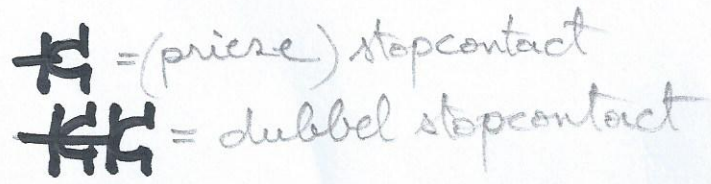 = (priese) stopcontact
= dubbel stopcontact